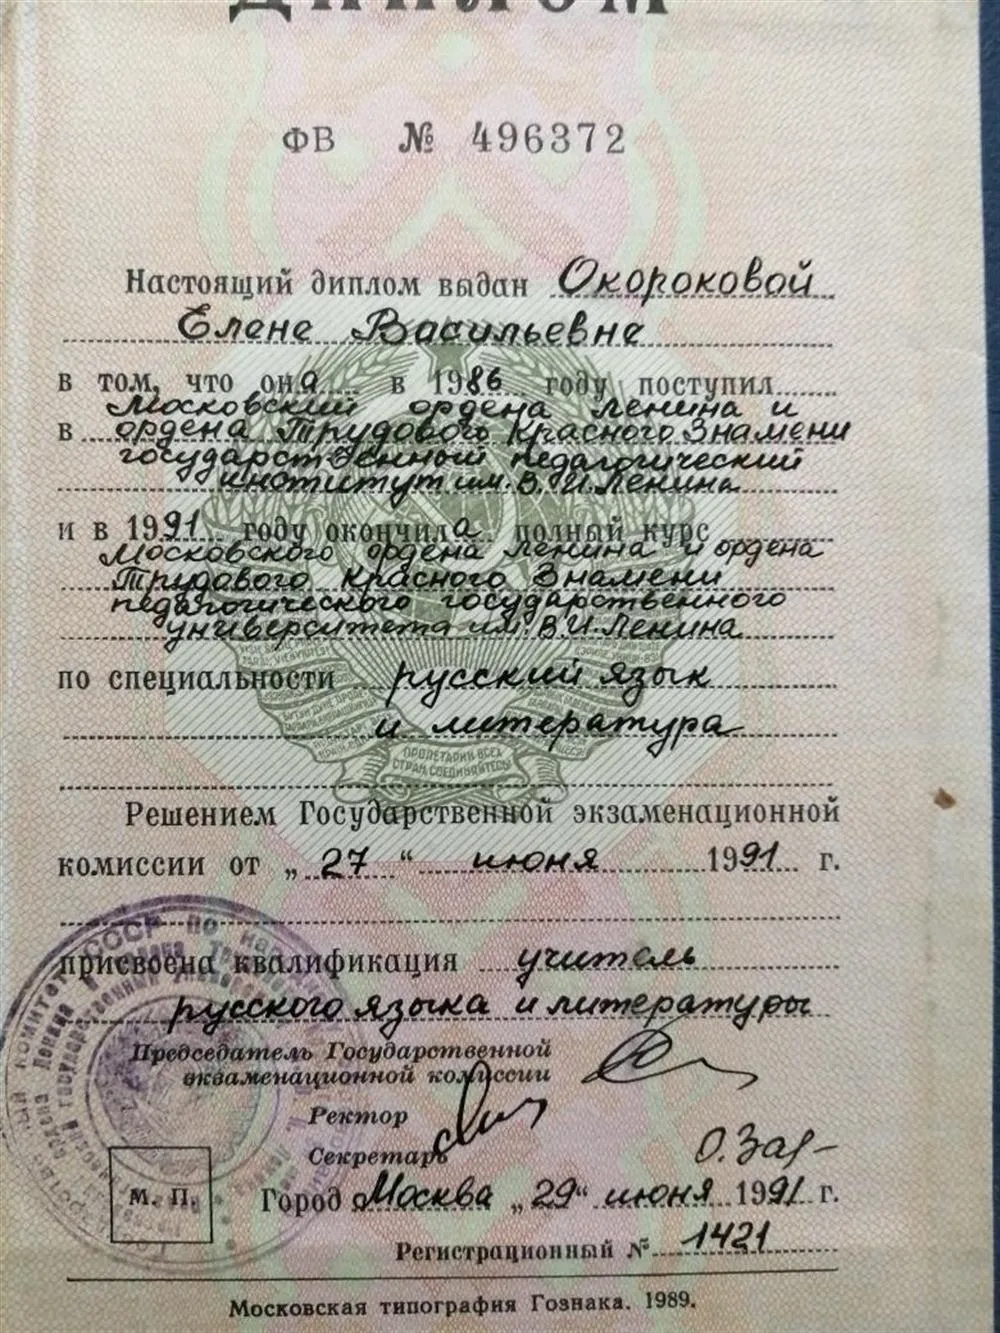 ДИПЛОМ
ФВ № 496372
Настоящий диплом выдан Окороковой
Елене Васильевне
в том, что она в 1986 году поступил
Московский ордена Ленина и
в ордена Трудового Красного Знамени
государственный педагогический
институт им. В.И. Ленина
и в 1991 году окончила полный курс
Московского ордена Ленина и ордена
Трудового Красного Знамени
педагогического государственного
университета им. В.И. Ленина
по специальности русский язык
и литература
ПРОЛЕТАРИИ ВСЕХ
СТРАН, СОЕДИНЯЙТЕСЬ!
Решением Государственной экзаменационной
комиссии от „27“ июня 1991 г.
присвоена квалификация учитель
русского языка и литературы
Председатель Государственной
экзаменационной комиссии
Ректор
Секретарь
М. П. Город Москва „29“ июня 1991 г.
Регистрационный № 1421
Московская типография Гознака. 1989.